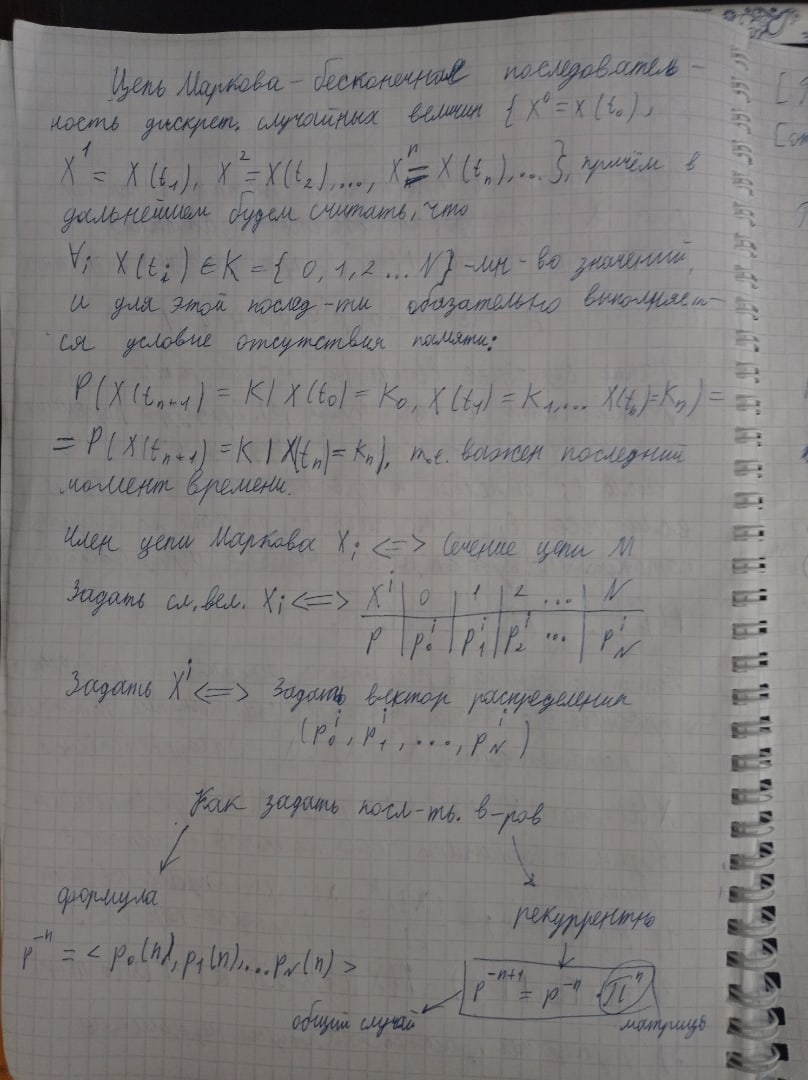 Цепь Маркова – бесконечная последователь-
ность дискрет. случайных величин { X⁰ = X(t₀),
X¹ = X(t₁), X² = X(t₂), ..., Xⁿ = X(tₙ), ... }, причём в
дальнейшем будем считать, что
∀i X(tᵢ) ∈ K = { 0, 1, 2 ... N } – мн-во значений,
и для этой послед-ти обязательно выполняет-
ся условие отсутствия памяти:
P( X(tₙ₊₁) = K / X(t₀) = K₀, X(t₁) = K₁, ... X(tₙ) = Kₙ) =
= P( X(tₙ₊₁) = K / X(tₙ) = Kₙ), т.е. важен последний
момент времени.
Член цепи Маркова Xᵢ <=> Сечение цепи М
Задать сл. вел. Xᵢ <=> Xⁱ | 0 | 1 | 2 ... N
P | p₀ⁱ | p₁ⁱ | p₂ⁱ ... p_Nⁱ
Задать Xⁱ <=> Задать вектор распределения
(p₀ⁱ, p₁ⁱ, ..., p_Nⁱ)
Как задать посл-ть. в-ров
формула
рекуррентно
p⁻ⁿ = < p₀(n), p₁(n), ... p_N(n) >
p⁻ⁿ⁺¹ = p⁻ⁿ · Пⁿ
общий случай
матрицы